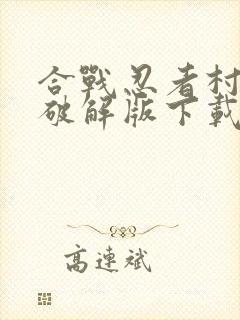 合戰忍者村
破解版下載
高連斌